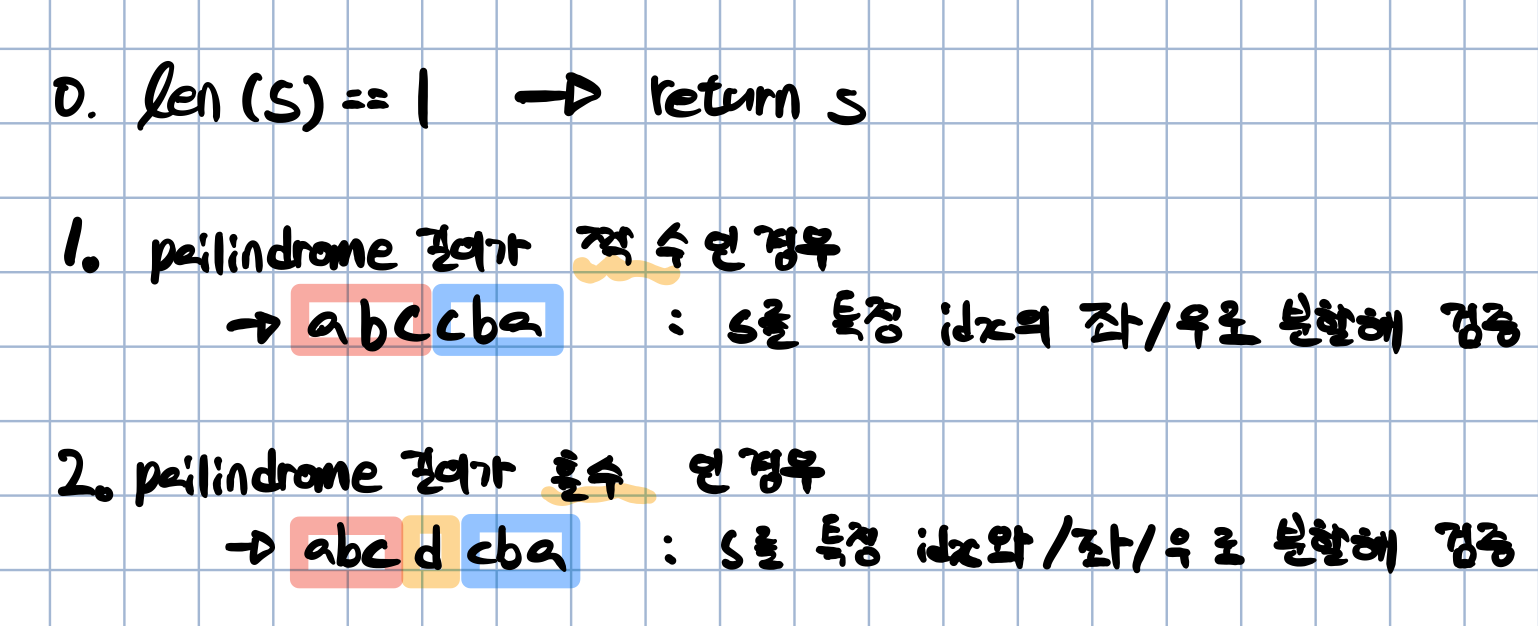 0. len (s) == 1 → return s
1. pailindrome 길이가 짝수인 경우
→ abccba : s를 특정 idx의 좌/우로 분할해 검증
2. pailindrome 길이가 홀수 인 경우
→ abc d cba : s를 특정 idx와/좌/우로 분할해 검증